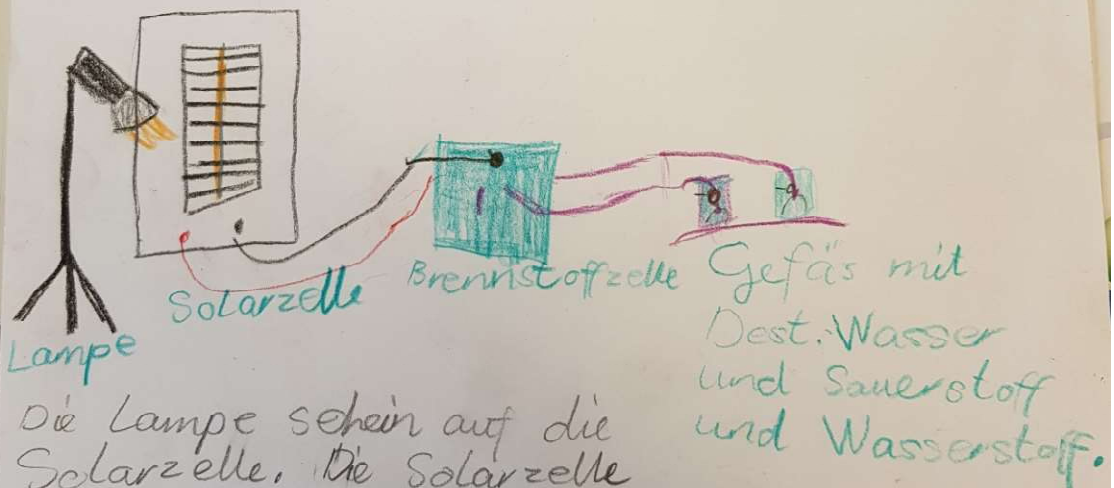 Lampe
Solarzelle
Brennstoffzelle
Gefäs mit
Dest. Wasser
und Sauerstoff
und Wasserstoff.
Die Lampe schein auf die
Solarzelle. Die Solarzelle